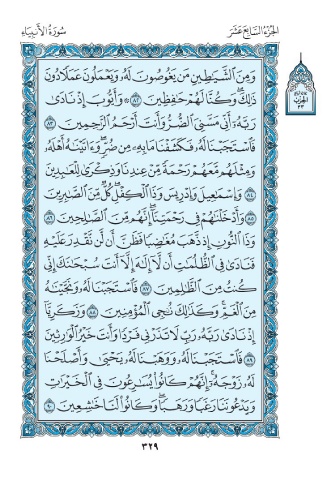 الجزء السابع عشر
سورة الأنبياء
وَمِنَ ٱلشَّيَٰطِينِ مَن يَغُوصُونَ لَهُۥ وَيَعْمَلُونَ عَمَلًا دُونَ
ذَٰلِكَ ۖ وَكُنَّا لَهُمْ حَٰفِظِينَ ٨٢ ۞ وَأَيُّوبَ إِذْ نَادَىٰ
رَبَّهُۥٓ أَنِّى مَسَّنِىَ ٱلضُّرُّ وَأَنتَ أَرْحَمُ ٱلرَّٰحِمِينَ ٨٣
فَٱسْتَجَبْنَا لَهُۥ فَكَشَفْنَا مَا بِهِۦ مِن ضُرٍّ ۖ وَءَاتَيْنَٰهُ أَهْلَهُۥ
وَمِثْلَهُم مَّعَهُمْ رَحْمَةً مِّنْ عِندِنَا وَذِكْرَىٰ لِلْعَٰبِدِينَ
٨٤ وَإِسْمَٰعِيلَ وَإِدْرِيسَ وَذَا ٱلْكِفْلِ ۖ كُلٌّ مِّنَ ٱلصَّٰبِرِينَ
٨٥ وَأَدْخَلْنَٰهُمْ فِى رَحْمَتِنَآ ۖ إِنَّهُم مِّنَ ٱلصَّٰلِحِينَ ٨٦
وَذَا ٱلنُّونِ إِذ ذَّهَبَ مُغَٰضِبًا فَظَنَّ أَن لَّن نَّقْدِرَ عَلَيْهِ
فَنَادَىٰ فِى ٱلظُّلُمَٰتِ أَن لَّآ إِلَٰهَ إِلَّآ أَنتَ سُبْحَٰنَكَ إِنِّى
كُنتُ مِنَ ٱلظَّٰلِمِينَ ٨٧ فَٱسْتَجَبْنَا لَهُۥ وَنَجَّيْنَٰهُ
مِنَ ٱلْغَمِّ ۚ وَكَذَٰلِكَ نُۨجِى ٱلْمُؤْمِنِينَ ٨٨ وَزَكَرِيَّآ
إِذْ نَادَىٰ رَبَّهُۥ رَبِّ لَا تَذَرْنِى فَرْدًا وَأَنتَ خَيْرُ ٱلْوَٰرِثِينَ
٨٩ فَٱسْتَجَبْنَا لَهُۥ وَوَهَبْنَا لَهُۥ يَحْيَىٰ وَأَصْلَحْنَا
لَهُۥ زَوْجَهُۥٓ ۚ إِنَّهُمْ كَانُوا۟ يُسَٰرِعُونَ فِى ٱلْخَيْرَٰتِ
وَيَدْعُونَنَا رَغَبًا وَرَهَبًا ۖ وَكَانُوا۟ لَنَا خَٰشِعِينَ ٩٠
٣٢٩